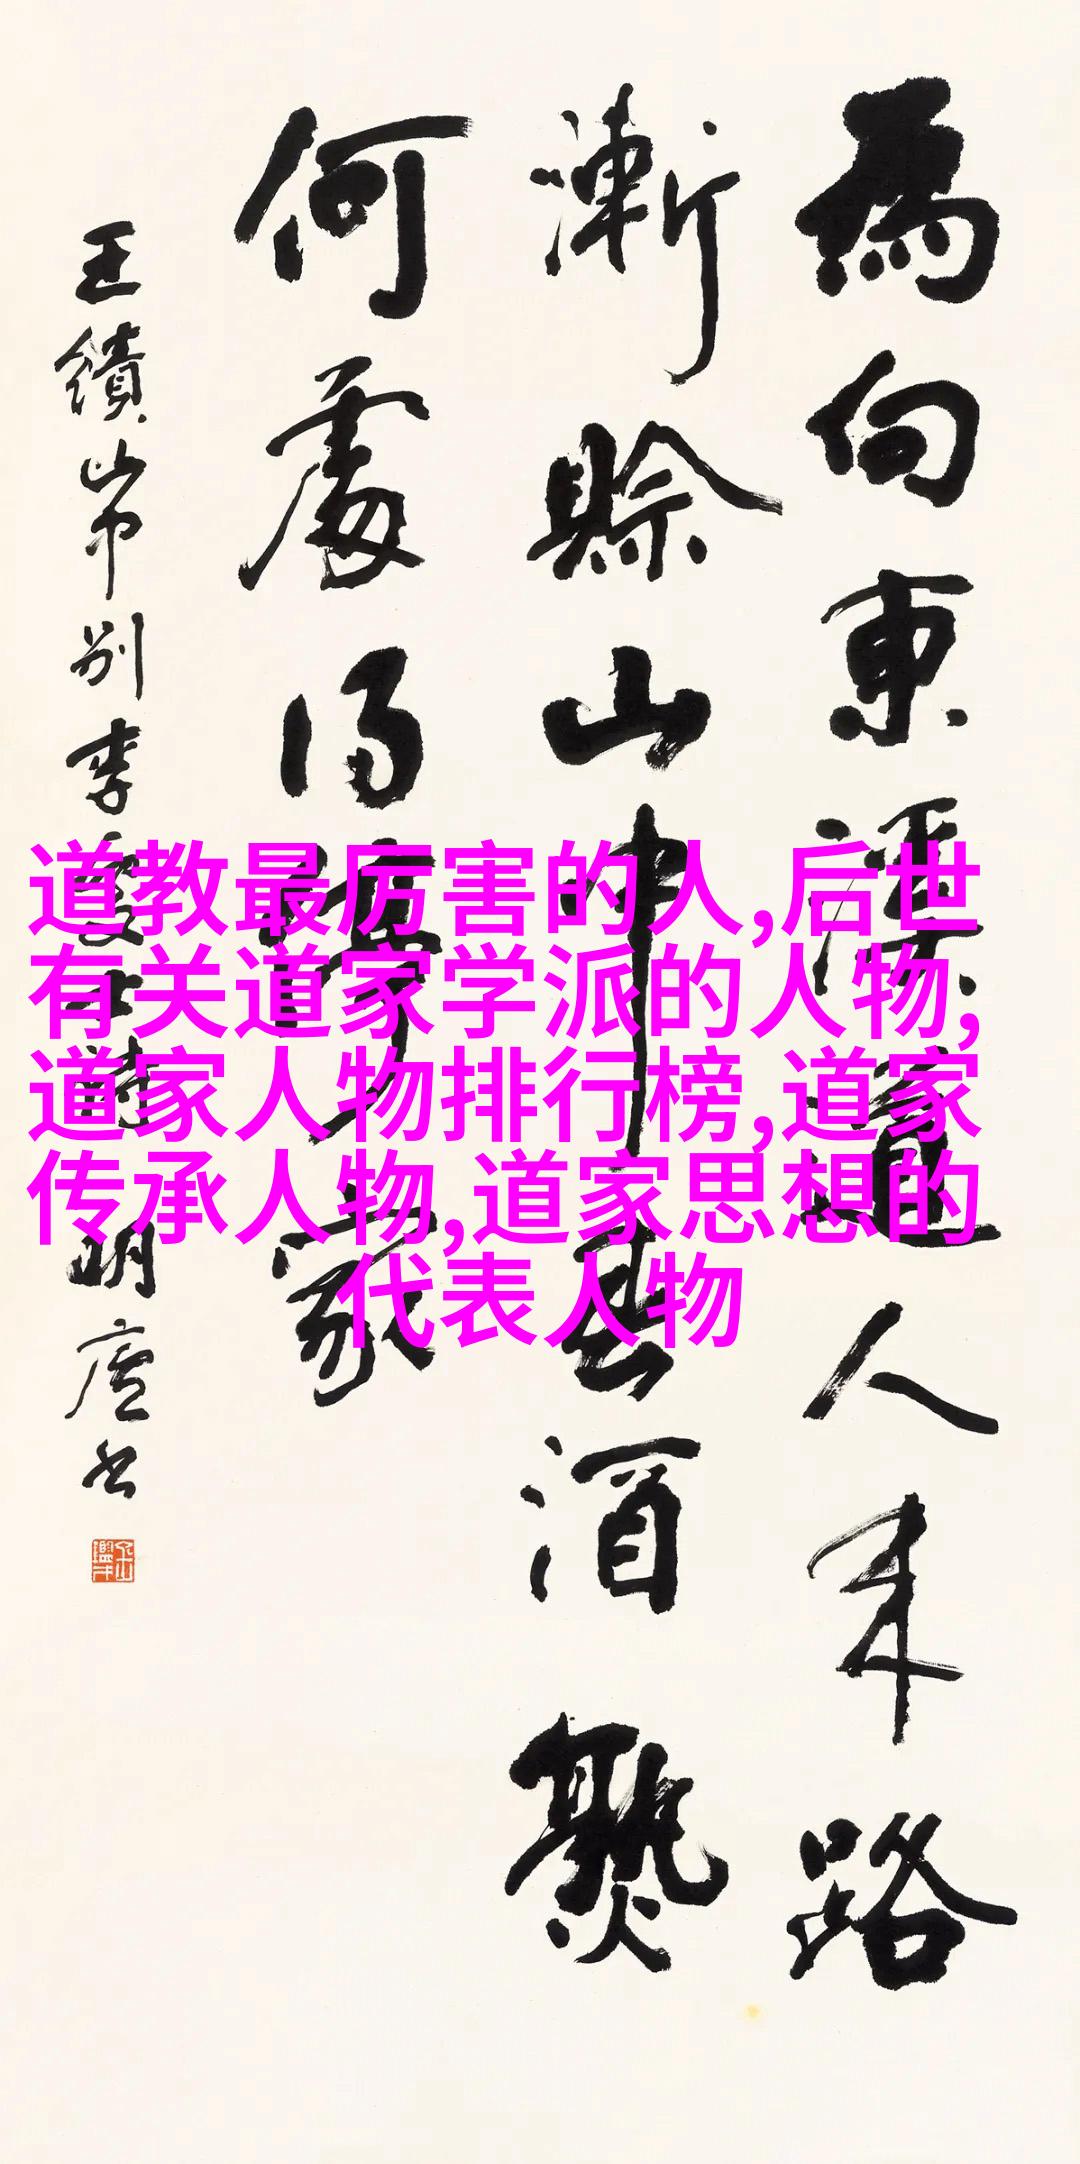 為向東溪道人来路
漸賒山中春酒熟
何處得停家
王績山中別李處士詩 明廬書
道教最厉害的人,后世
有关道家学派的人物,
道家人物排行榜,道家
传承人物,道家思想的
代表人物